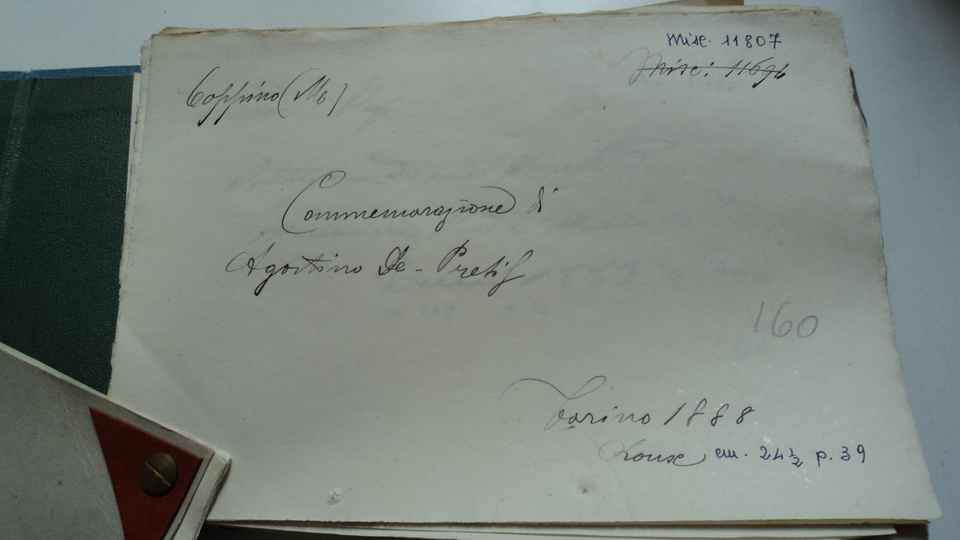 Misc. 11807
Misc. 11696
Coppino (M.)
Commemorazione di
Agostino De-Pretis
160
Torino 1888
Roux cm. 24½ p. 39